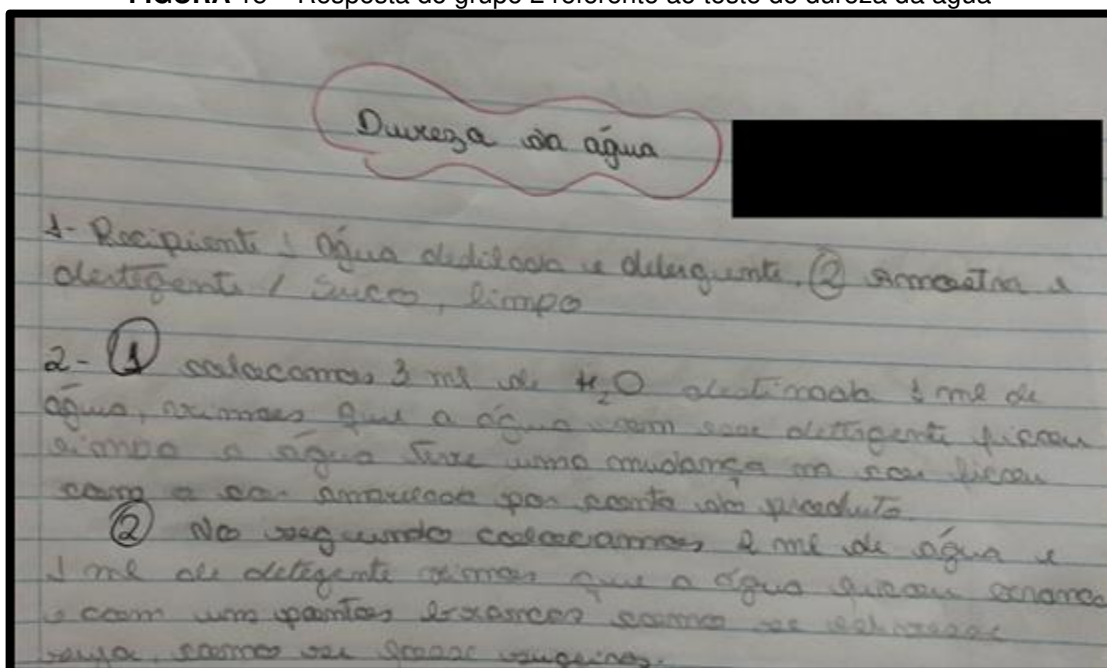 FIGURA 18 – Resposta do grupo 2 referente ao teste de dureza da água
Dureza da água
1- Recipiente 1 água dedilada e deterguente. ② amostra e
detegente / Suco, limpo
2- ① colocamos 3 ml de H₂O 1 ml de
água, vimos que a água com esse detergente ficou
limpo a água teve uma mudança na cor ficou
com a cor amarelada por conta do produto.
② No segundo colocamos 2 ml de água e
1 ml de detegente vimos que a água ficou
e com uns pontos brancos como se estivesse
suja, como se fosse